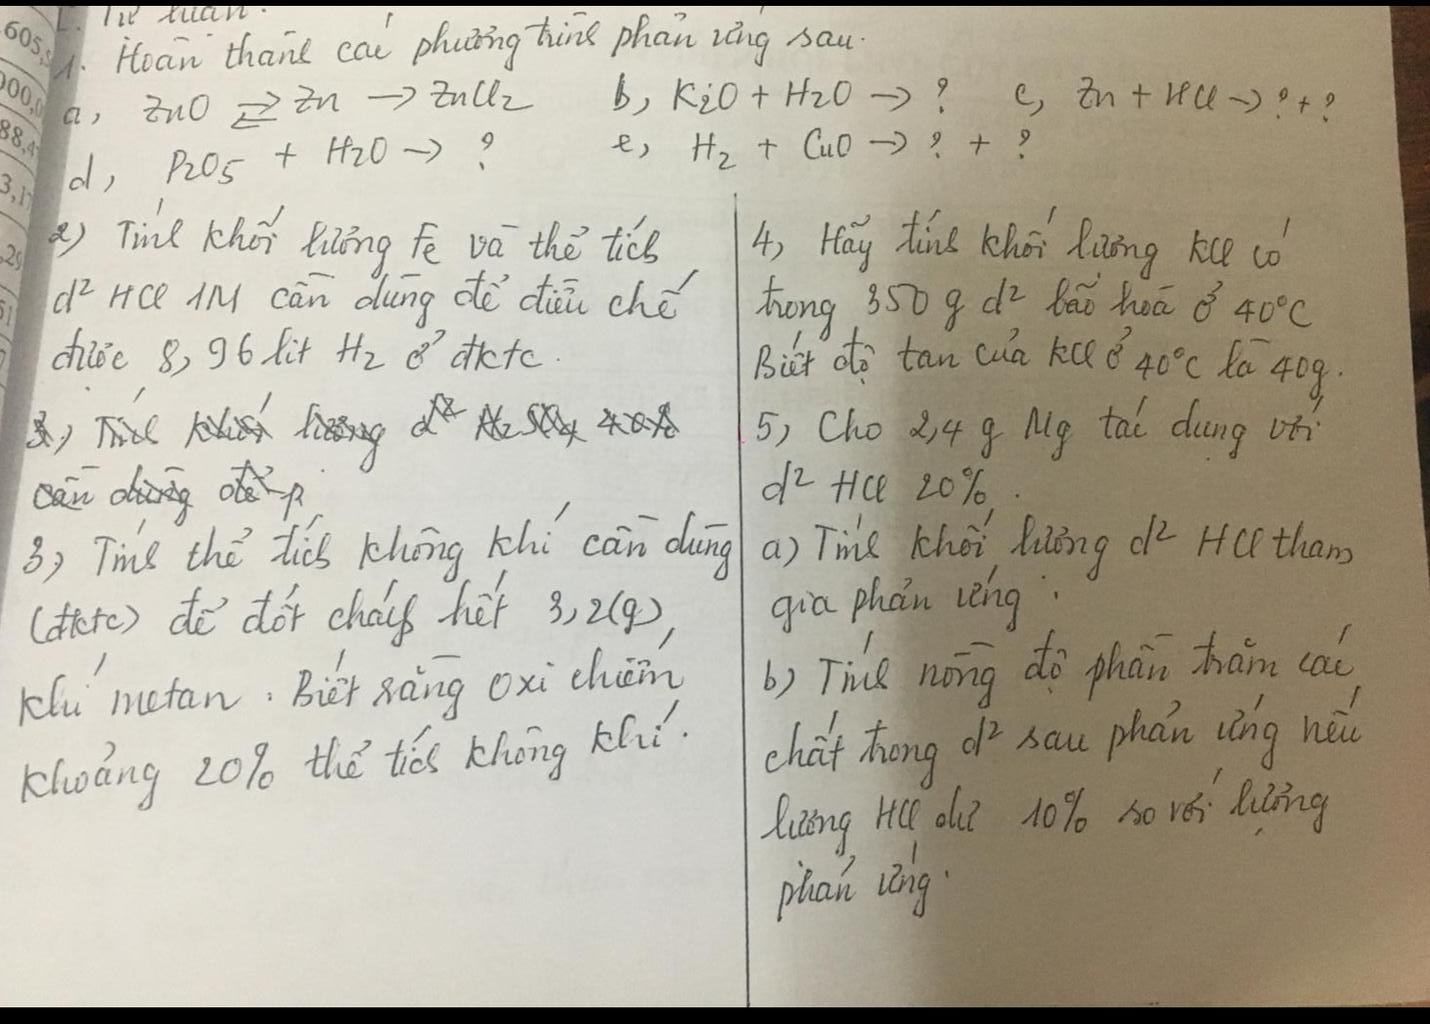 605,
000,0
88,4
3,1
,29
51
Tự luận.
1. Hoàn thành các phương trình phản ứng sau.
a, ZnO ⇄ Zn → ZnCl2 b, K2O + H2O → ? c, Zn + HCl → ? + ?
d, P2O5 + H2O → ? e, H2 + CuO → ? + ?
2) Tính khối lượng Fe và thể tích
d² HCl 1M cần dùng để điều chế
được 8,96 lít H2 ở đktc.
3, Tính khối lượng d² H2SO4 40%
cần dùng để p
3) Tính thể tích không khí cần dùng
(đktc) để đốt cháy hết 3,2(g)
khí metan. Biết rằng oxi chiếm
khoảng 20% thể tích không khí.
4, Hãy tính khối lượng KCl có
trong 350 g d² bão hoà ở 40°C
Biết độ tan của KCl ở 40°C là 40g.
5, Cho 2,4 g Mg tác dụng với
d² HCl 20%.
a) Tính khối lượng d² HCl tham
gia phản ứng.
b) Tính nồng độ phần trăm các
chất trong d² sau phản ứng nếu
lượng HCl dư 10% so với lượng
phản ứng.